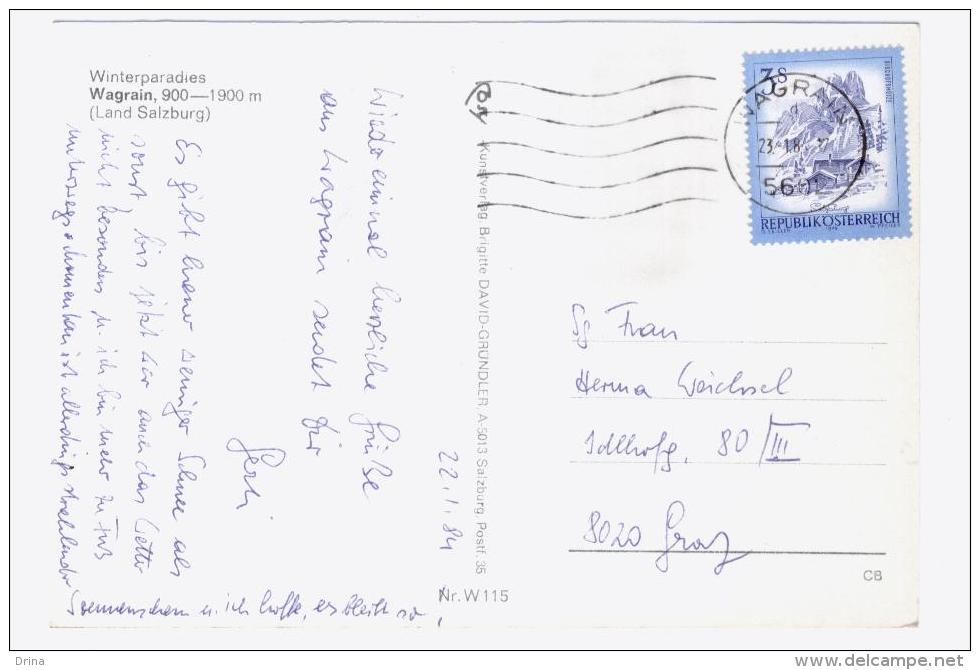 Winterparadies
Wagrain, 900—1900 m
(Land Salzburg)
22.1.84
Wieder einmal herzliche Grüße
aus Wagrain sendet Dir
Gerli
Es gibt heuer weniger Schnee als
sonst, bis jetzt war auch das Wetter
nicht besonders u. ich bin mehr zu Fuß
unterwegs, momentan ist allerdings strahlender
Sonnenschein u. ich hoffe, es bleibt so,
Kunstverlag Brigitte DAVID-GRÜNDLER A-5013 Salzburg, Postf. 35
Nr. W 115
3S
BISCHOFSMÜTZE
REPUBLIK ÖSTERREICH
WAGRAIN
5602
Sg Frau
Herma Weichsel
Idlhofg. 80/III
8020 Graz
CB
Drina
www.delcampe.net